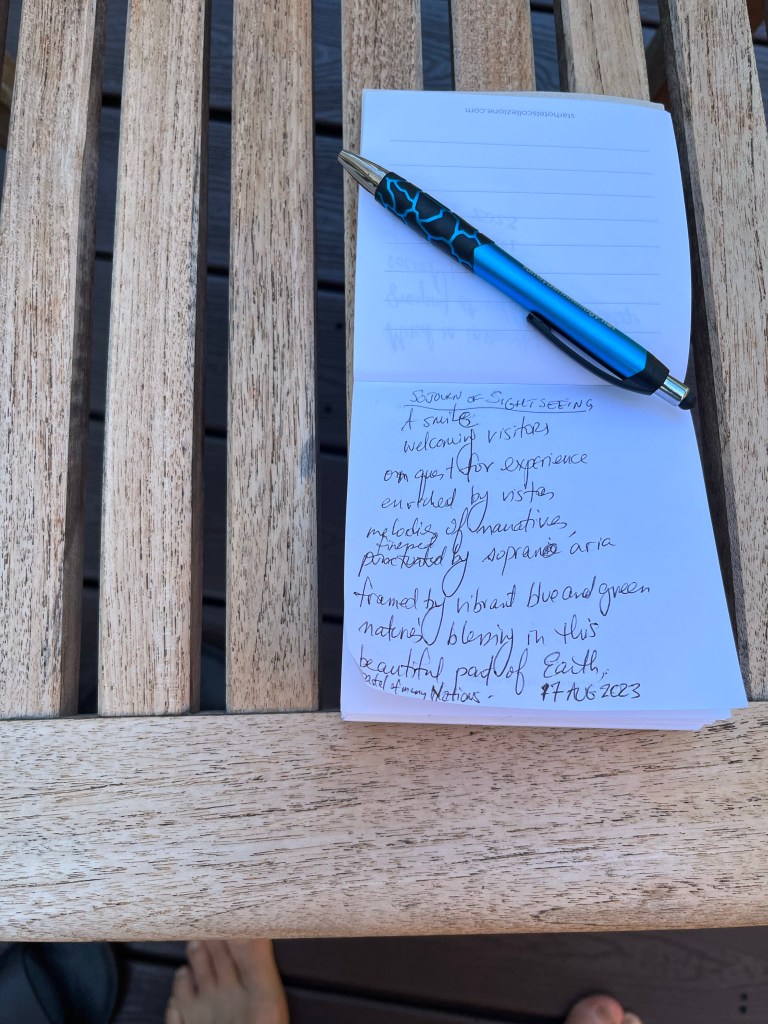 starhotelscollezione.com
SOJOURN OF SIGHTSEEING
A smile
welcoming visitors
on quest for experience
enriched by vistas
melodies of narratives,
punctuated by soprano aria
framed by vibrant blue and green
nature's blessing in this
beautiful pad of Earth,
of many Nations.
17 AUG 2023